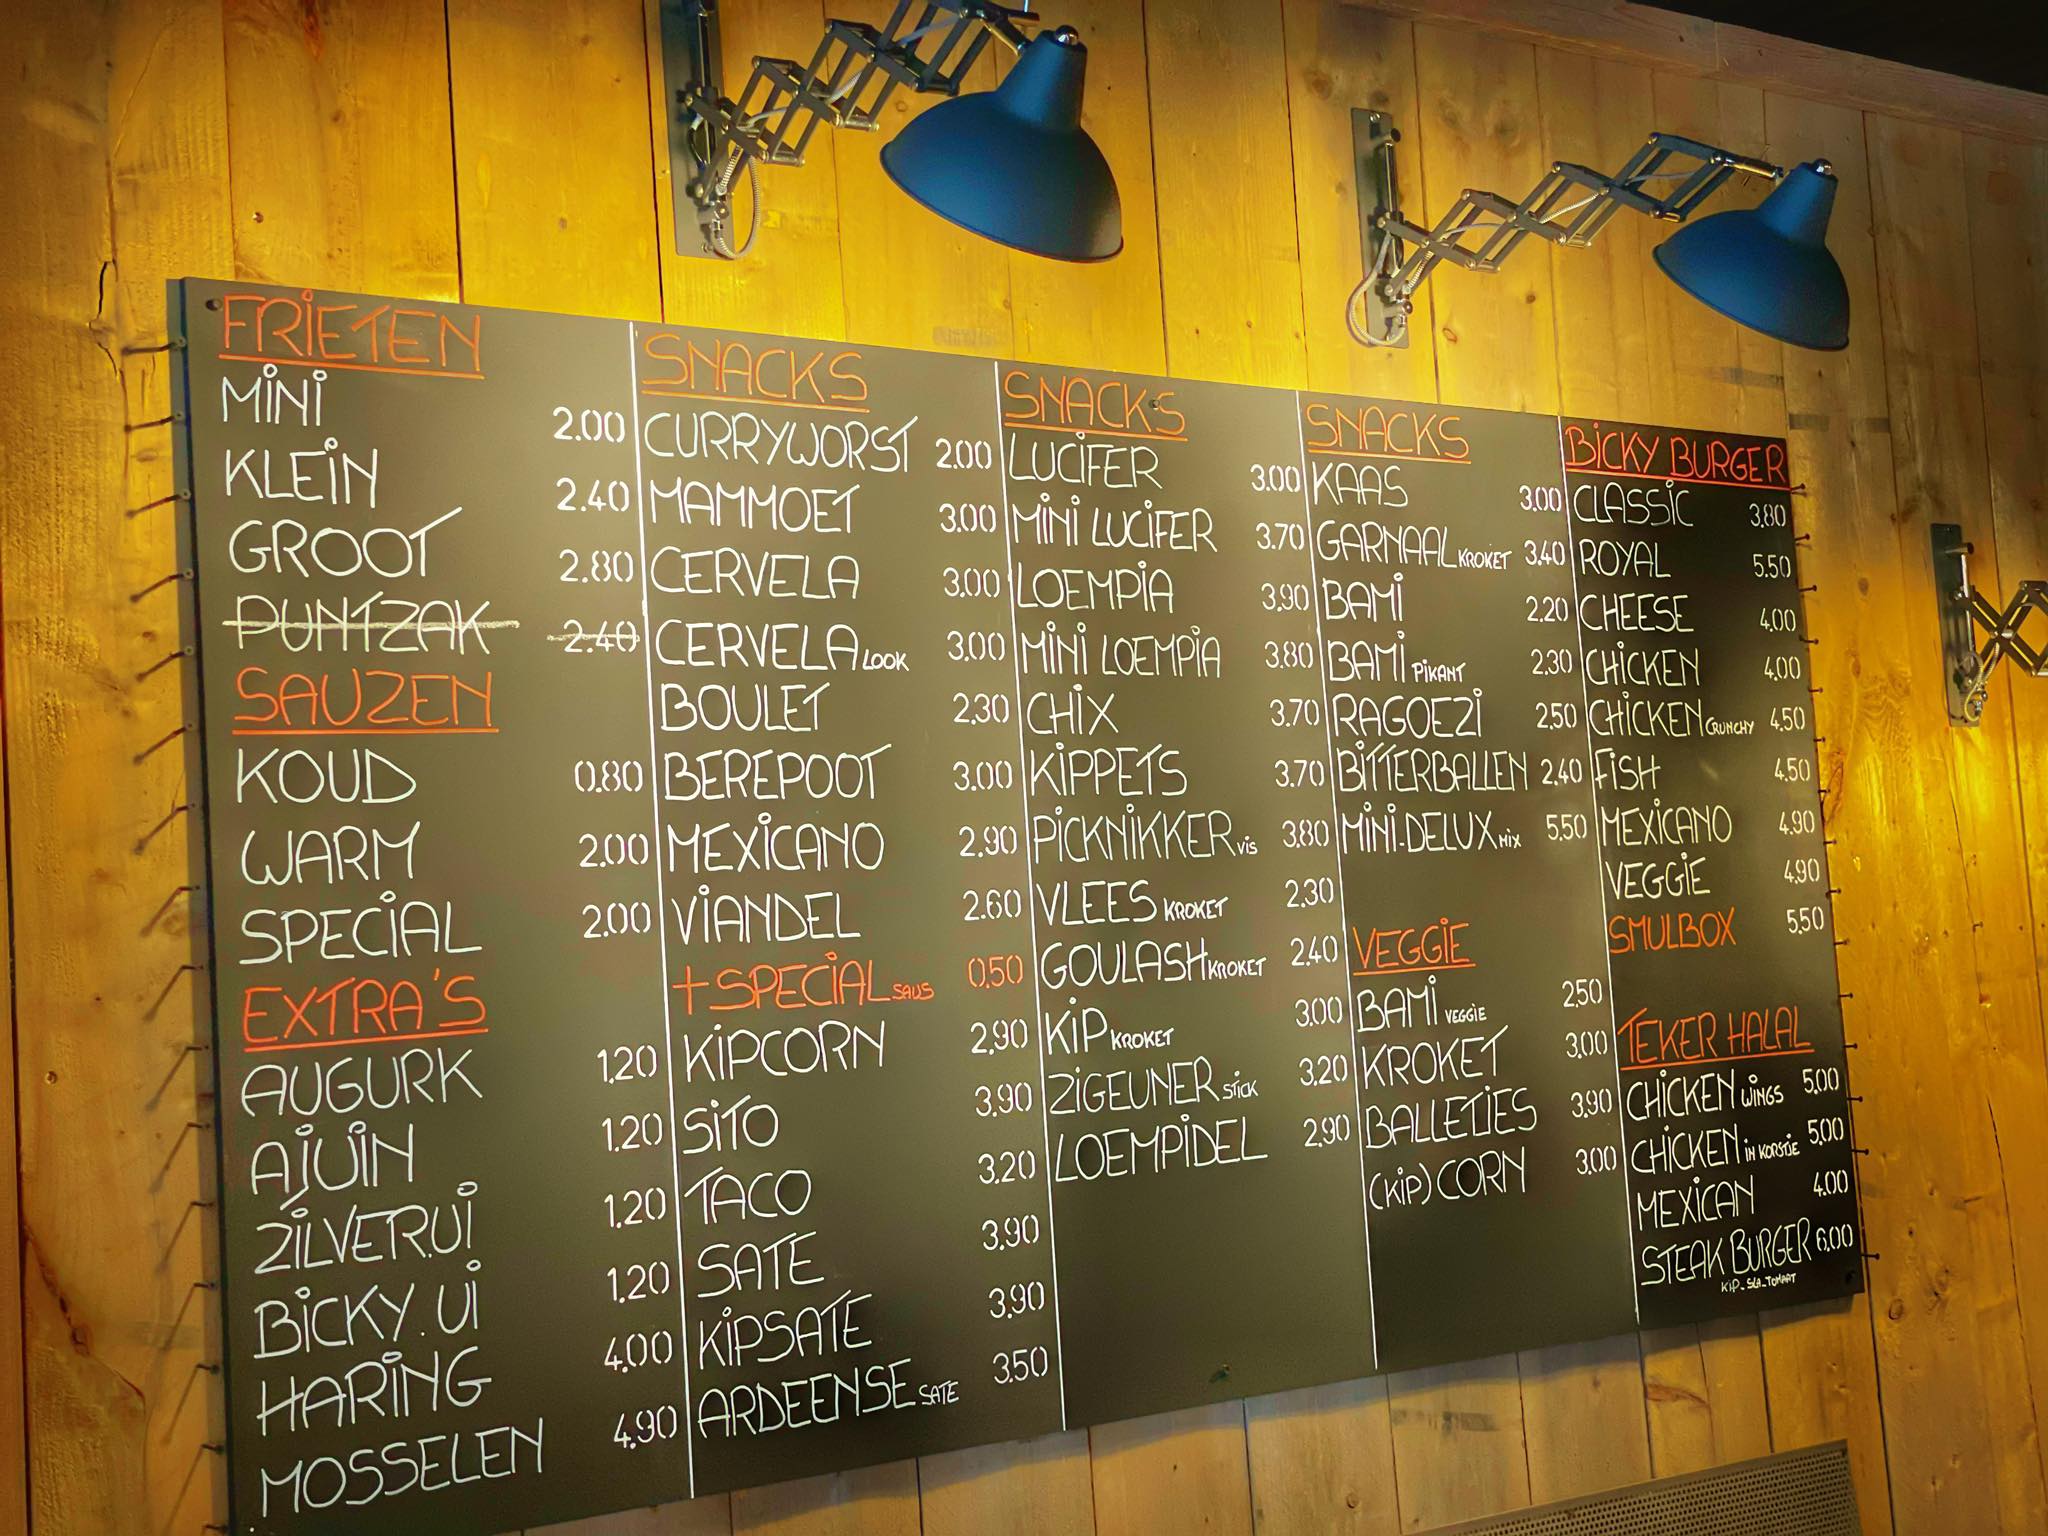 FRIETEN
MINI 2.00
KLEIN 2.40
GROOT 2.80
PUNTZAK 2.40
SAUZEN
KOUD 0.80
WARM 2.00
SPECIAL 2.00
EXTRA'S
AUGURK 1.20
AJUIN 1.20
ZILVERUI 1.20
BICKY.UI 1.20
HARING 4.00
MOSSELEN 4.90
SNACKS
CURRYWORST 2.00
MAMMOET 3.00
CERVELA 3.00
CERVELA LOOK 3.00
BOULET 2.30
BEREPOOT 3.00
MEXICANO 2.90
VIANDEL 2.60
+SPECIAL SAUS 0.50
KIPCORN 2.90
SITO 3.90
TACO 3.20
SATE 3.90
KIPSATE 3.90
ARDEENSE SATE 3.50
SNACKS
LUCIFER 3.00
MINI LUCIFER 3.70
LOEMPIA 3.90
MINI LOEMPIA 3.80
CHIX 3.70
KIPPETS 3.70
PICKNIKKER VIS 3.80
VLEES KROKET 2.30
GOULASH KROKET 2.40
KIP KROKET 3.00
ZIGEUNER STICK 3.20
LOEMPIDEL 2.90
SNACKS
KAAS 3.00
GARNAAL KROKET 3.40
BAMI 2.20
BAMI PIKANT 2.30
RAGOEZI 2.50
BITTERBALLEN 2.40
MINI-DELUX MIX 5.50
VEGGIE
BAMI VEGGIE 2.50
KROKET 3.00
BALLETJES 3.90
(KIP) CORN 3.00
BICKY BURGER
CLASSIC 3.80
ROYAL 5.50
CHEESE 4.00
CHICKEN 4.00
CHICKEN CRUNCHY 4.50
FISH 4.50
MEXICANO 4.90
VEGGIE 4.90
SMULBOX 5.50
TEKER HALAL
CHICKEN WINGS 5.00
CHICKEN IN KORSTJE 5.00
MEXICAN 4.00
STEAK BURGER 6.00
KIP-SLA-TOMAAT